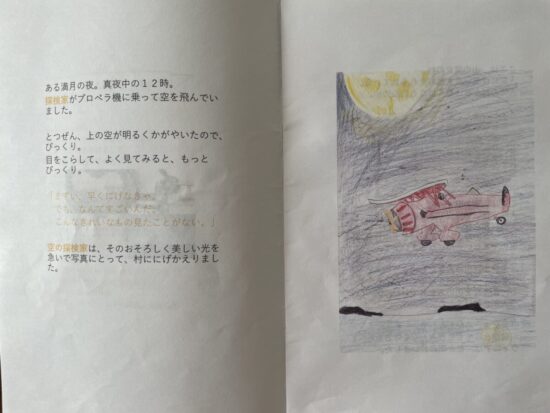 ある満月の夜。真夜中の１２時。
探検家がプロペラ機に乗って空を飛んでい
ました。
とつぜん、上の空が明るくかがやいたので、
びっくり。
目をこらして、よく見てみると、もっと
びっくり。
「まずい、早くにげなきゃ。
でも、なんてすごいんだ。
こんなきれいなもの見たことがない。」
空の探検家は、そのおそろしく美しい光を
急いで写真にとって、村ににげかえりまし
た。